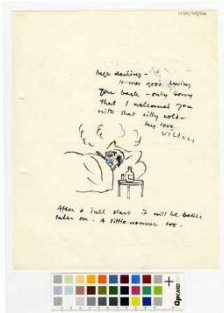 darling -
It was good having
you back - only sorry
that I welcomed you
with that silly cold -
my love
After a dull start it will be better
later on. A little warmer too.